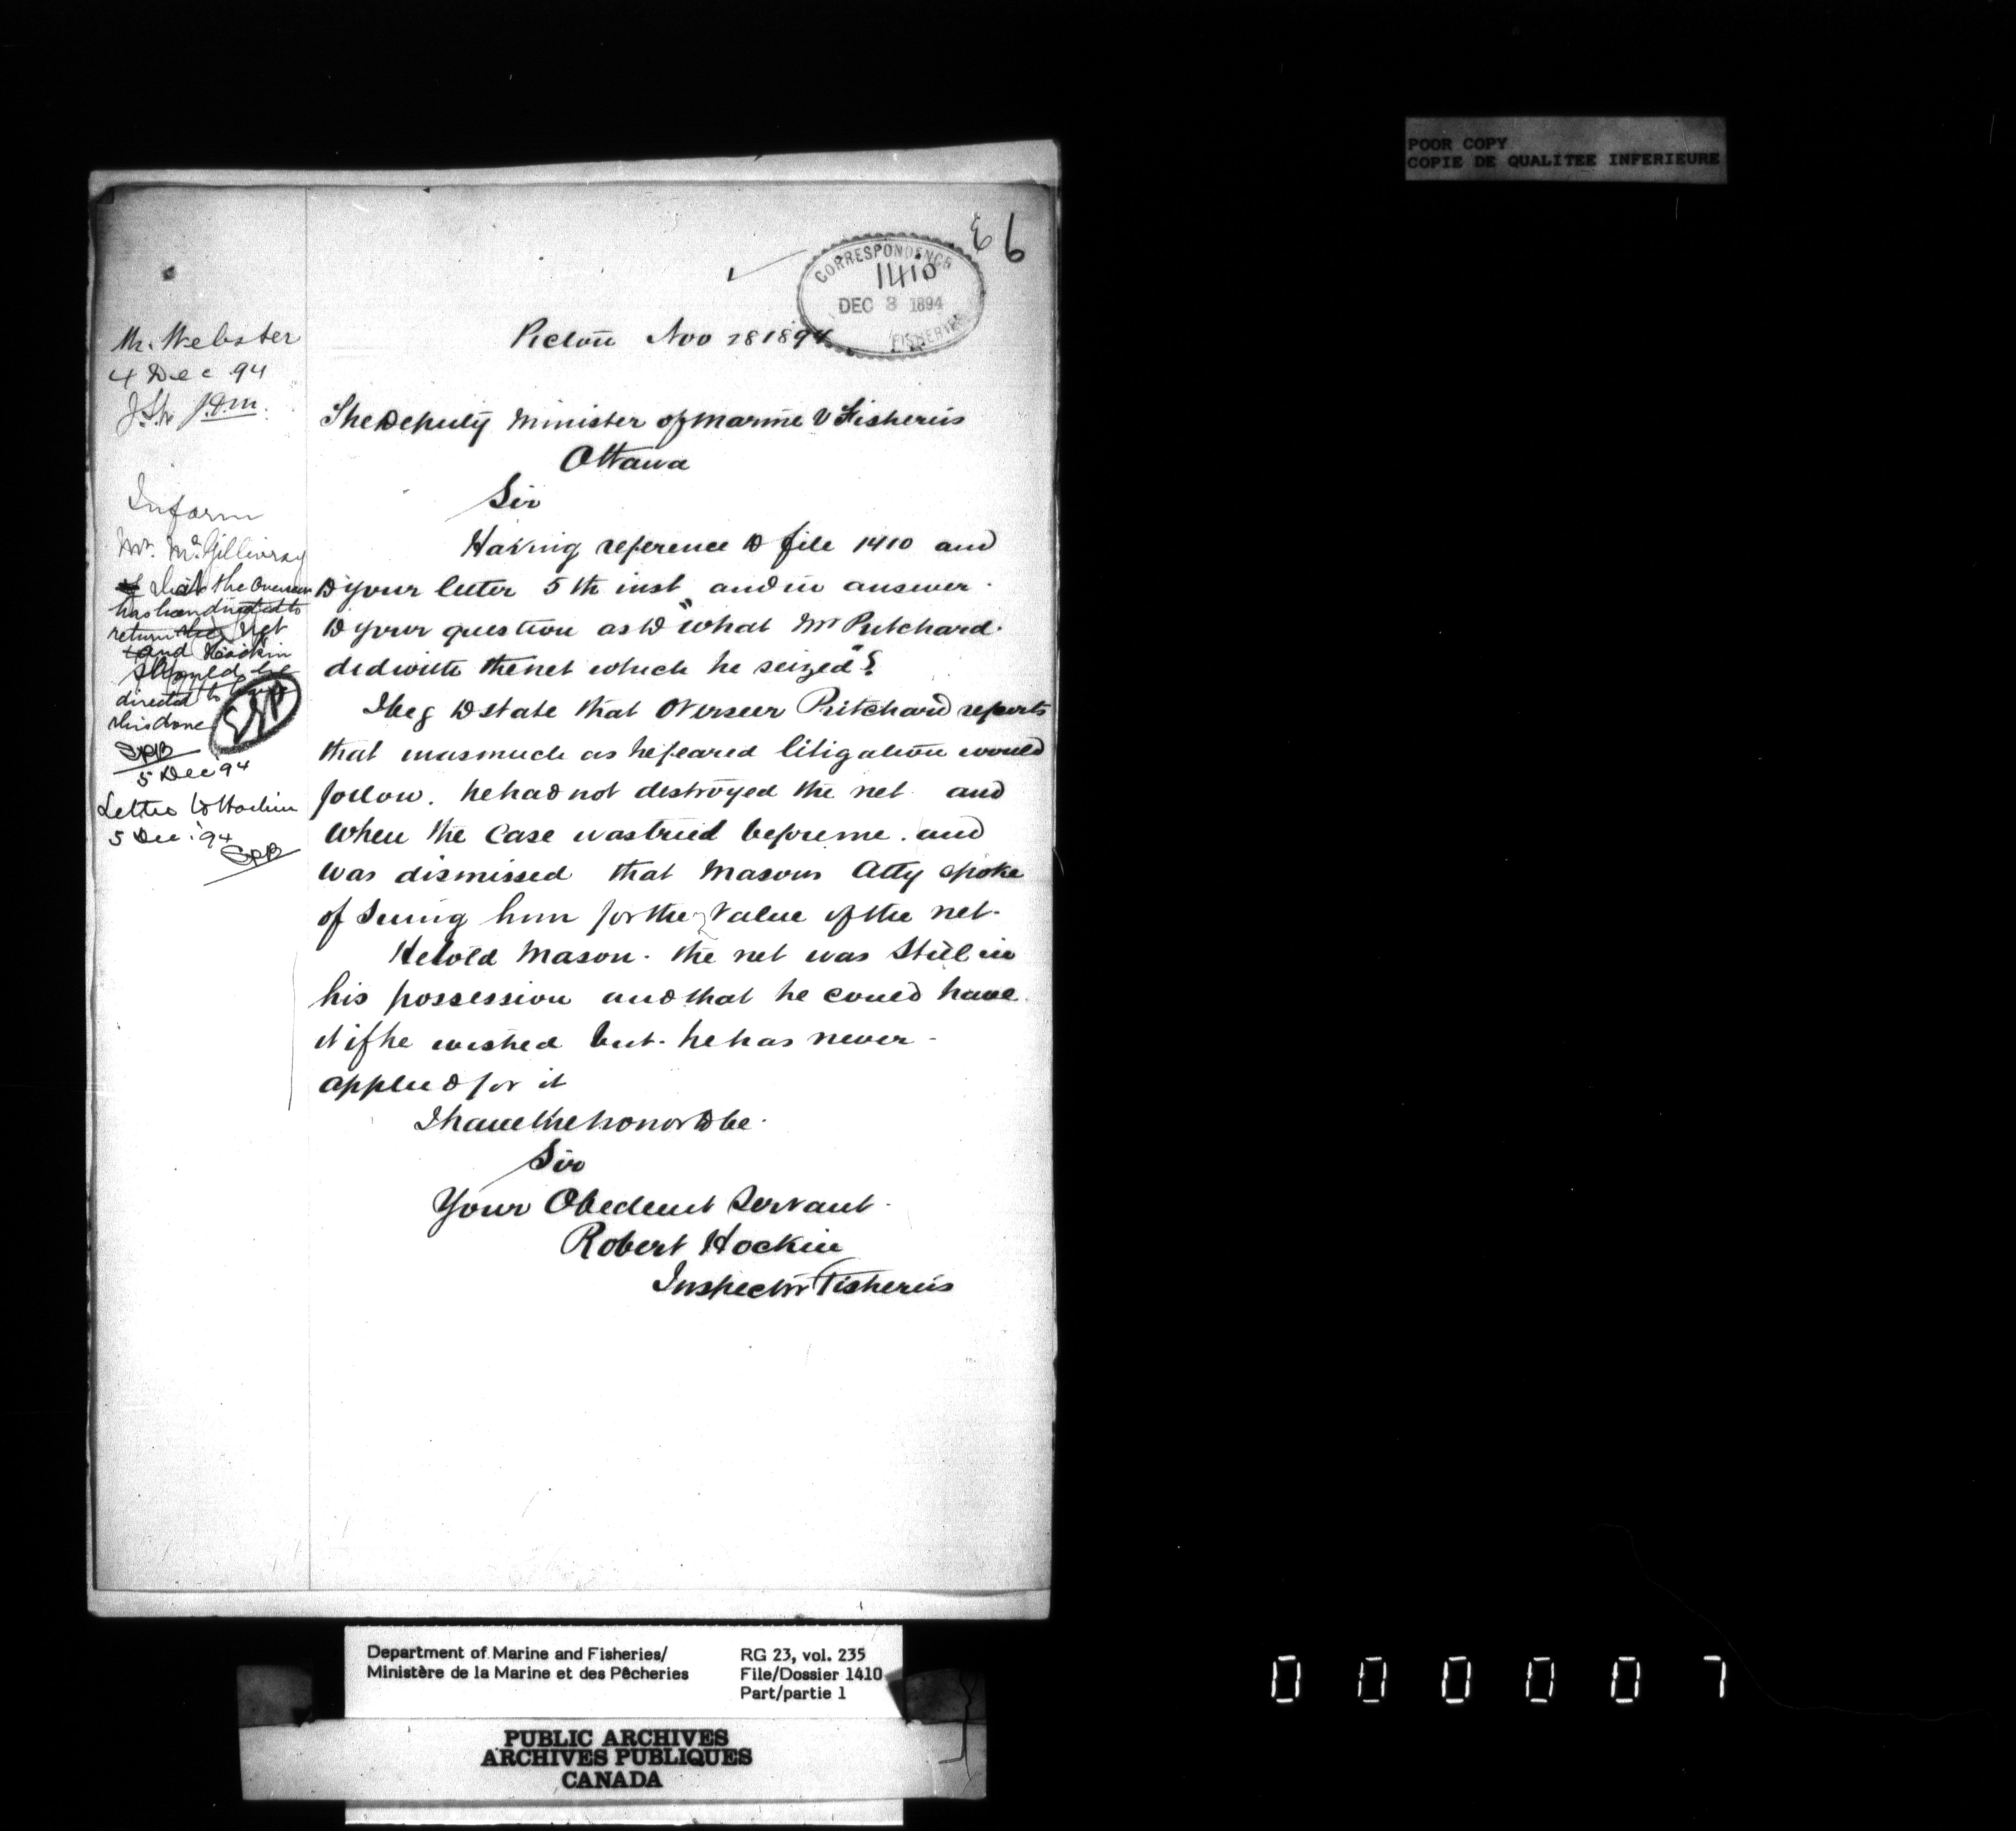 POOR COPY
COPIE DE QUALITEE INFERIEURE
66
CORRESPONDENCE
1410
DEC 3 1894
FISHERIES
Pictou Nov 28 1894
Mr. Webster
4 Dec 94
The Deputy Minister of Marine & Fisheries
Ottawa
Sir
Having reference to file 1410 and
to your letter 5th inst and in answer
to your question as to "what Mr Pritchard
did with the net which he seized"?
I beg to state that Overseer Pritchard reports
that inasmuch as he feared litigation would
follow. he had not destroyed the net and
when the Case was tried before me. and
was dismissed that Masons Atty spoke
of Suing him for the value of the net.
He told Mason. the net was Still in
his possession and that he could have
it if he wished but. he has never
applied for it
I have the honor to be.
Sir
Your Obedient Servant.
Robert Hockin
Inspector Fisheries
Inform
Mr. McGillivray
that the Overseer
has been directed to
return the net
and Hockin
should be
directed to have
this done
5 Dec '94
Letter to Hockin
5 Dec. '94
Department of Marine and Fisheries/
Ministère de la Marine et des Pêcheries
RG 23, vol. 235
File/Dossier 1410
Part/partie 1
PUBLIC ARCHIVES
ARCHIVES PUBLIQUES
CANADA
000007